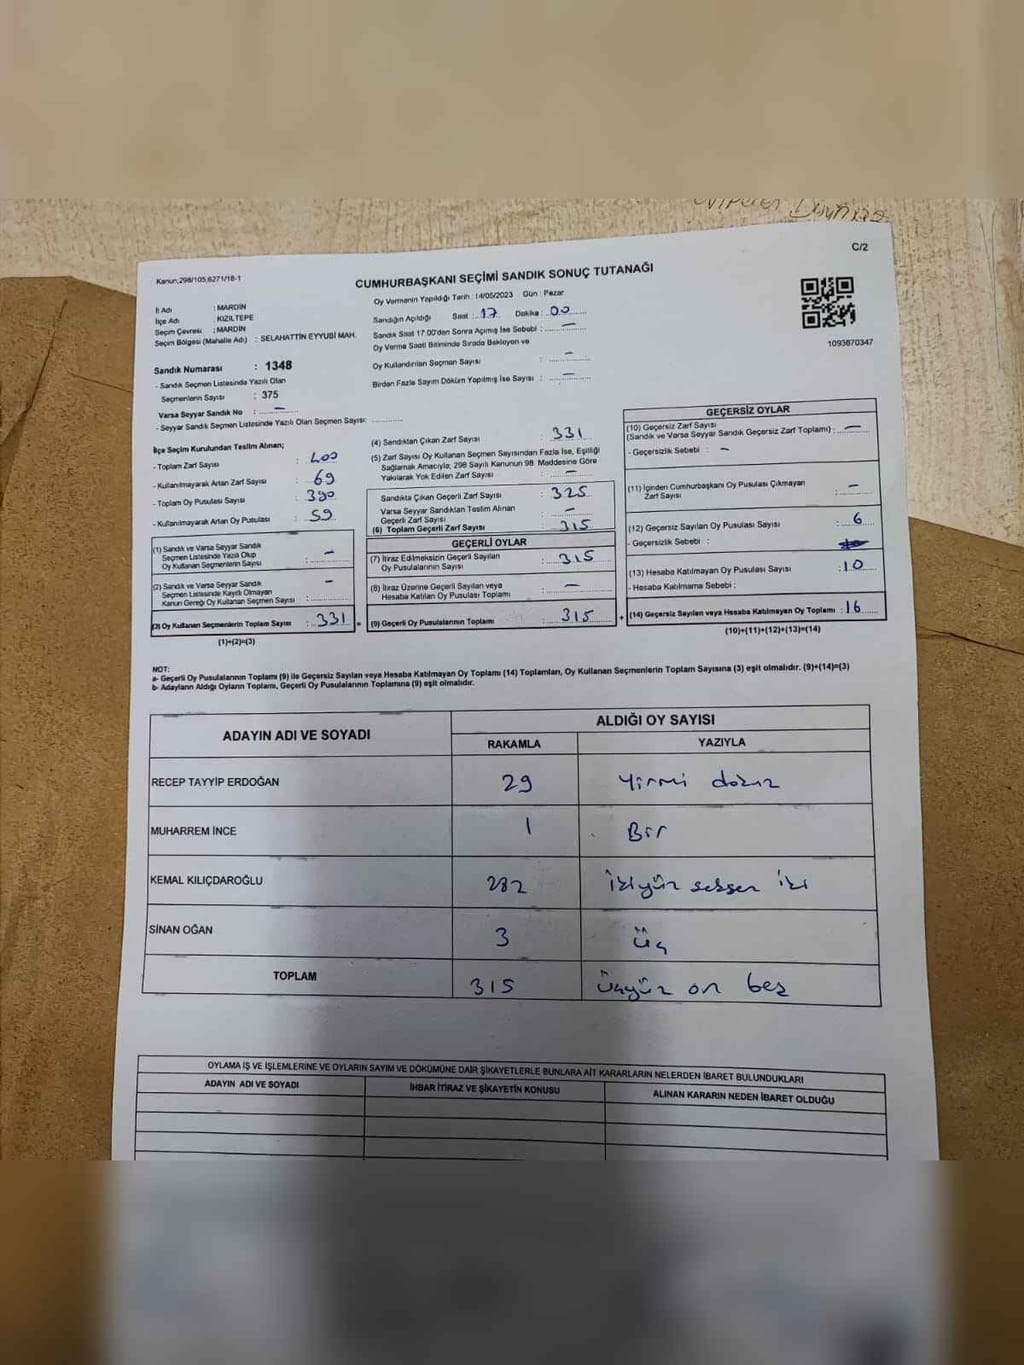 C/2
Kanun:298/105,6271/18-1
CUMHURBAŞKANI SEÇİMİ SANDIK SONUÇ TUTANAĞI
İl Adı : MARDİN
İlçe Adı : KIZILTEPE
Seçim Çevresi : MARDİN
Seçim Bölgesi (Mahalle Adı) : SELAHATTİN EYYUBİ MAH.
Sandık Numarası : 1348
- Sandık Seçmen Listesinde Yazılı Olan
Seçmenlerin Sayısı : 375
Varsa Seyyar Sandık No : –
- Seyyar Seçmen Listesinde Yazılı Olan Seçmen Sayısı: ............
Oy Vermenin Yapıldığı Tarih : 14/05/2023 Gün : Pazar
Sandığın Açıldığı Saat : 17 Dakika : 00
Sandık Saat 17:00'den Sonra Açılmış İse Sebebi : –
Oy Verme Saati Bitiminde Sırada Bekleyen ve
Oy Kullandırılan Seçmen Sayısı : –
Birden Fazla Sayım Döküm Yapılmış İse Sayısı : –
1093870347
İlçe Seçim Kurulundan Teslim Alınan;
- Toplam Zarf Sayısı : 400
- Kullanılmayarak Artan Zarf Sayısı : 69
- Toplam Oy Pusulası Sayısı : 390
- Kullanılmayarak Artan Oy Pusulası : 59
(1) Sandık ve Varsa Seyyar Sandık
Seçmen Listesinde Yazılı Olup
Oy Kullanan Seçmenlerin Sayısı : –
(2) Sandık ve Varsa Seyyar Sandık
Seçmen Listesinde Kaydı Olmayan
Kanun Gereği Oy Kullanan Seçmen Sayısı : –
(3) Oy Kullanan Seçmenlerin Toplam Sayısı : 331 =
(1)+(2)=(3)
(4) Sandıktan Çıkan Zarf Sayısı : 331
(5) Zarf Sayısı Oy Kullanan Seçmen Sayısından Fazla İse, Eşitliği
Sağlamak Amacıyla; 298 Sayılı Kanunun 98. Maddesine Göre
Yakılarak Yok Edilen Zarf Sayısı : –
Sandıkta Çıkan Geçerli Zarf Sayısı : 325
Varsa Seyyar Sandıktan Teslim Alınan
Geçerli Zarf Sayısı : –
(6) Toplam Geçerli Zarf Sayısı : 315
GEÇERLİ OYLAR
(7) İtiraz Edilmeksizin Geçerli Sayılan
Oy Pusulalarının Sayısı : 315
(8) İtiraz Üzerine Geçerli Sayılan veya
Hesaba Katılan Oy Pusulası Toplamı : –
(9) Geçerli Oy Pusulalarının Toplamı : 315 +
GEÇERSİZ OYLAR
(10) Geçersiz Zarf Sayısı
(Sandık ve Varsa Seyyar Sandık Geçersiz Zarf Toplamı) : –
- Geçersizlik Sebebi : –
(11) İçinden Cumhurbaşkanı Oy Pusulası Çıkmayan
Zarf Sayısı : –
(12) Geçersiz Sayılan Oy Pusulası Sayısı : 6
- Geçersizlik Sebebi :
(13) Hesaba Katılmayan Oy Pusulası Sayısı : 10
- Hesaba Katılmama Sebebi :
(14) Geçersiz Sayılan veya Hesaba Katılmayan Oy Toplamı : 16
(10)+(11)+(12)+(13)=(14)
NOT:
a- Geçerli Oy Pusulalarının Toplamı (9) ile Geçersiz Sayılan veya Hesaba Katılmayan Oy Toplamı (14) Toplamları, Oy Kullanan Seçmenlerin Toplam Sayısına (3) eşit olmalıdır. (9)+(14)=(3)
b- Adayların Aldığı Oyların Toplamı, Geçerli Oy Pusulalarının Toplamına (9) eşit olmalıdır.
ADAYIN ADI VE SOYADI
ALDIĞI OY SAYISI
RAKAMLA YAZIYLA
RECEP TAYYİP ERDOĞAN 29 Yirmi dokuz
MUHARREM İNCE 1 Bir
KEMAL KILIÇDAROĞLU 282 ikiyüz seksen iki
SİNAN OĞAN 3 üç
TOPLAM 315 üçyüz on beş
OYLAMA İŞ VE İŞLEMLERİNE VE OYLARIN SAYIM VE DÖKÜMÜNE DAİR ŞİKAYETLERLE BUNLARA AİT KARARLARIN NELERDEN İBARET BULUNDUKLARI
ADAYIN ADI VE SOYADI İHBAR İTİRAZ VE ŞİKAYETİN KONUSU ALINAN KARARIN NEDEN İBARET OLDUĞU